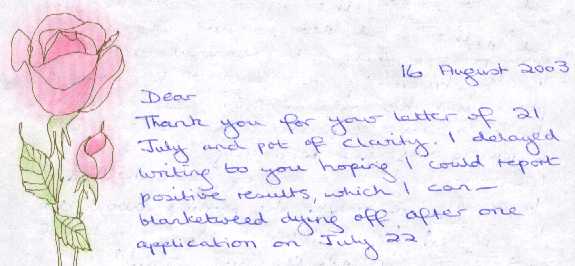 16 August 2003
Dear
Thank you for your letter of 21
July and pot of Clarity. I delayed
writing to you hoping I could report
positive results, which I can —
blanketweed dying off after one
application on July 22